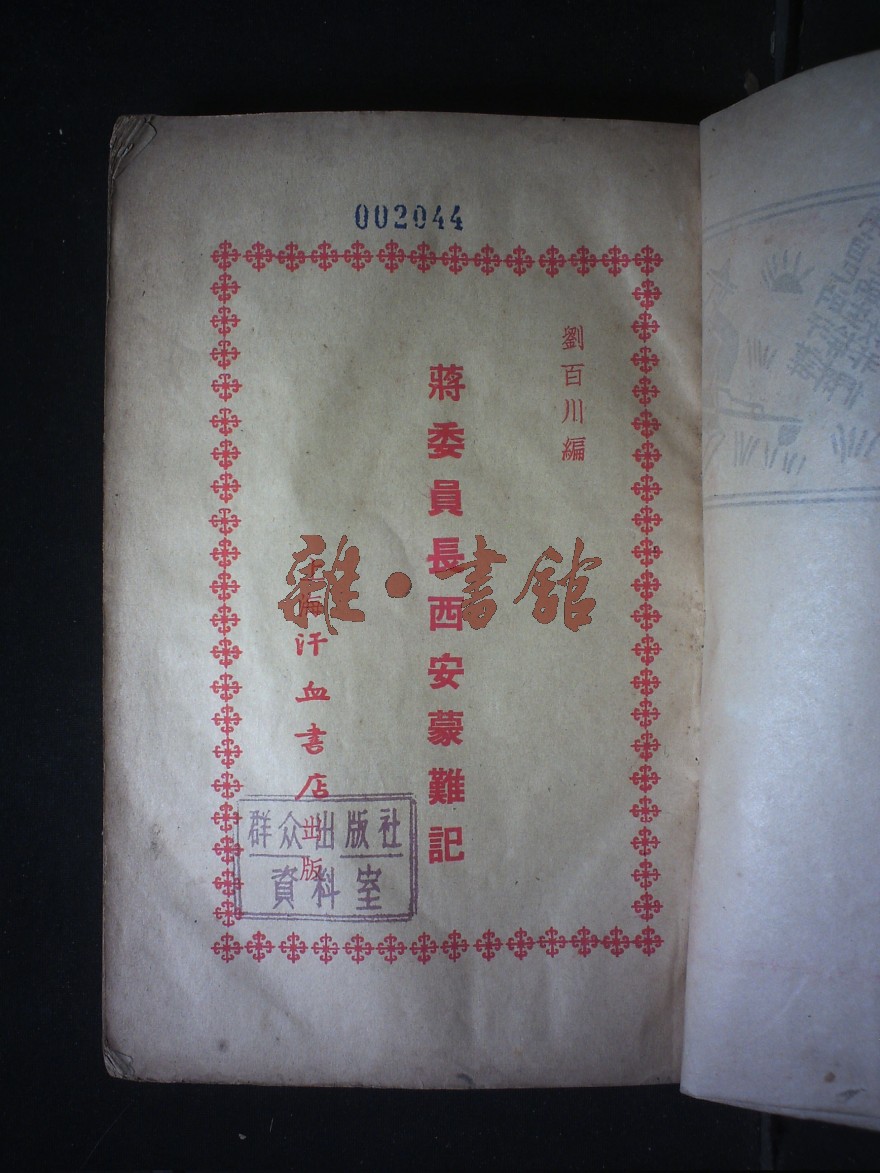 002044
劉百川編
蔣委員長西安蒙難記
上海汗血書店出版
雜·書舘
群众出版社
資料室